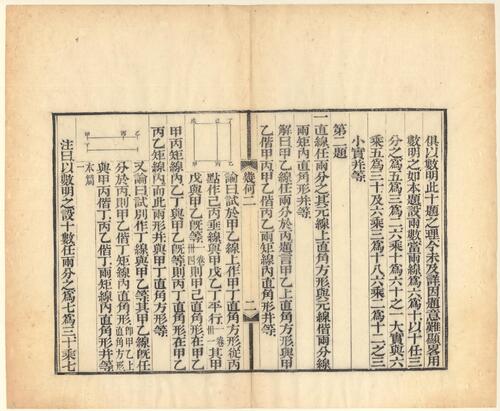 俱以數明此十題之理今未及詳因題意難顯畧用
數明之如本題設兩數當兩線為六為十以十任三
分之為五為三為二六乘十為六十之一大實與六
乘五為三十及六乘三為十八六乘二為十二之三
小實并等
第二題
一直線任兩分之其元線上直角方形與元線偕兩分線
兩矩內直角形并等
解曰甲乙線任兩分於丙題言甲乙上直角方形與甲
乙偕甲丙甲乙偕乙丙兩矩線內直角形并等
幾何二
二
論曰試於甲乙線上作甲丁直角方形從丙
點作己丙垂線與甲戊乙丁平行一卷卅一其甲
戊與甲乙旣等一卷卅四則甲己直角形在甲乙
甲丙矩線內乙丁與甲乙旣等則丙丁直角形在甲乙
丙乙矩線內而此兩形并與甲丁直角方形等
又論曰試別作丁線與甲乙等其甲乙線旣任
分於丙則甲乙偕丁矩線內直角形即甲乙上直角方形
與甲丙偕丁乙丙偕丁兩矩線內直角形并等
本篇一
注曰以數明之設十數任兩分之為七為三十乘七